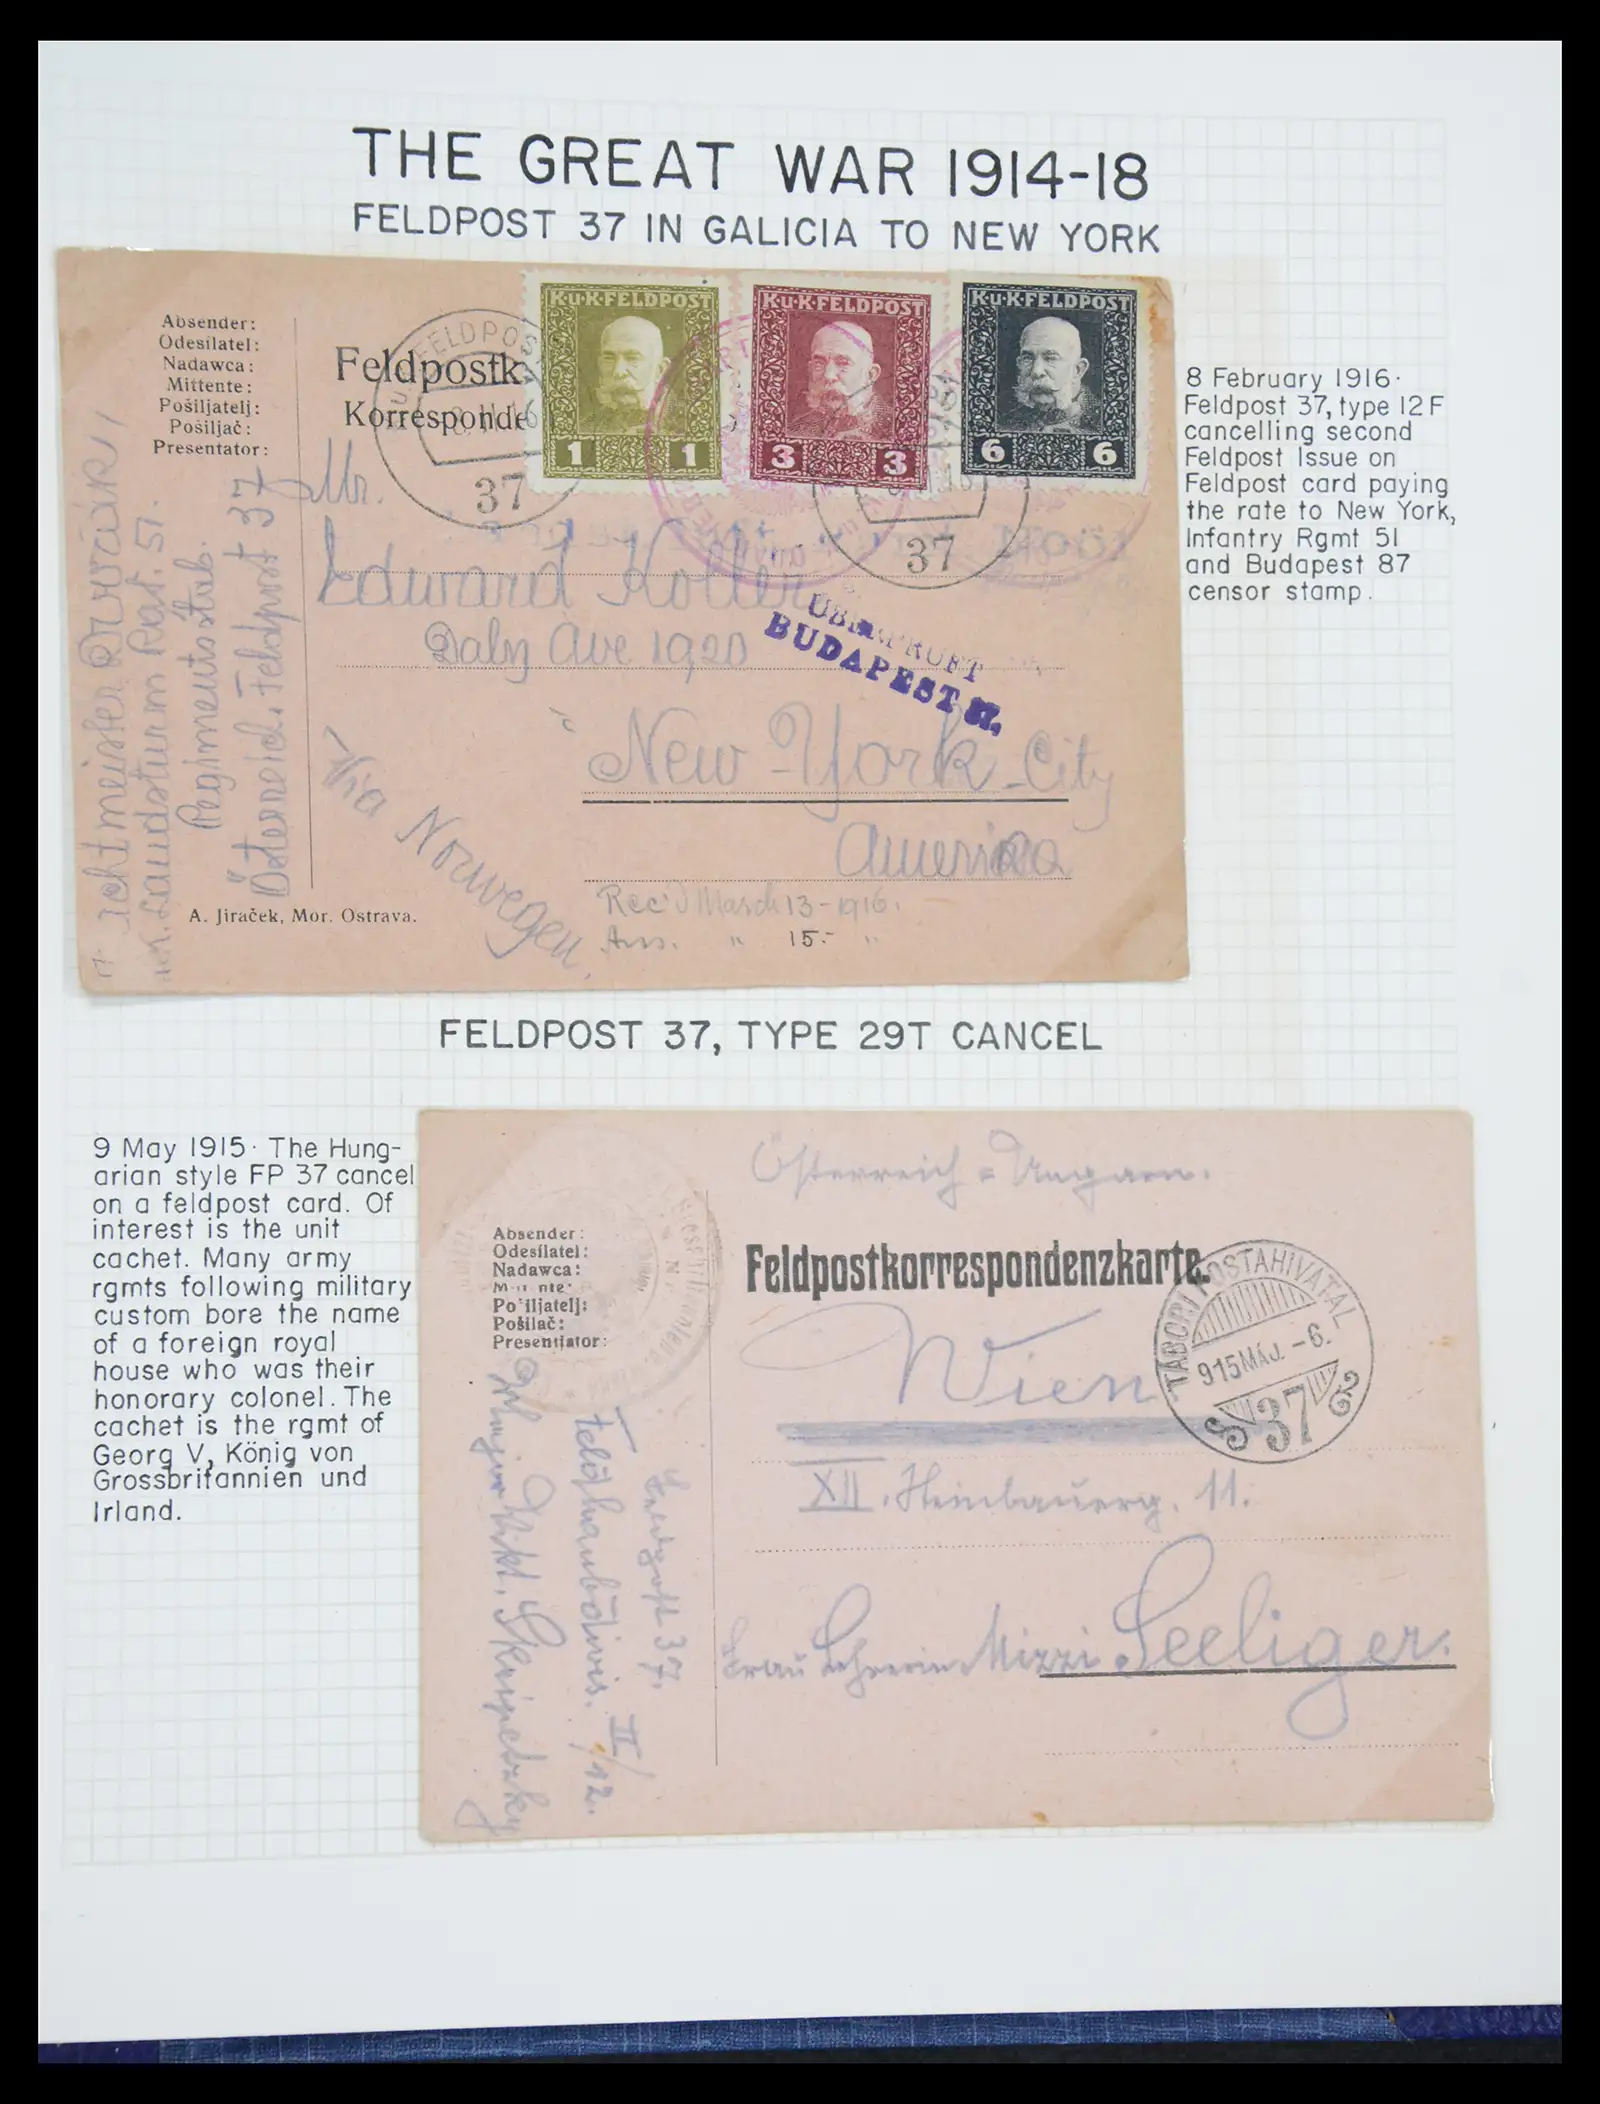 THE GREAT WAR 1914-18
FELDPOST 37 IN GALICIA TO NEW YORK
Absender:
Odesílatel:
Nadawca:
Mittente:
Pošiljatelj:
Pošiljač:
Presentator:
Feldpostk
Korresponde
K.u.K.FELDPOST
1 1
K.u.K.FELDPOST
3 3
K.u.K.FELDPOST
6 6
FELDPOS
37
37
Mr.
Edward Koller
Daly Ave 1920
ÜBERPRÜFT
BUDAPEST 87.
New-York-City
America
Via Norwegen.
Rec'd March 13-1916.
Ans. " 15.- "
Landsturm Rat. 51.
Regimentsstab.
Österreich. Feldpost 37
A. Jiraček, Mor. Ostrava.
8 February 1916.
Feldpost 37, type 12F
cancelling second
Feldpost Issue on
Feldpost card paying
the rate to New York,
Infantry Rgmt 51
and Budapest 87
censor stamp.
FELDPOST 37, TYPE 29T CANCEL
9 May 1915. The Hung-
arian style FP 37 cancel
on a feldpost card. Of
interest is the unit
cachet. Many army
rgmts following military
custom bore the name
of a foreign royal
house who was their
honorary colonel. The
cachet is the rgmt of
Georg V, König von
Grossbritannien und
Irland.
Österreich-Ungarn.
Absender:
Odesílatel:
Nadawca:
Mittente:
Pošiljatelj:
Pošilač:
Presentiator:
Feldpostkorrespondenzkarte.
TÁBORI POSTAHIVATAL
915 MÁJ. -6.
37
Wien
XII. Steinbauerg. 11.
Frau Lehrerin Mizzi Seeliger.
Feldpost 37.
II/12.